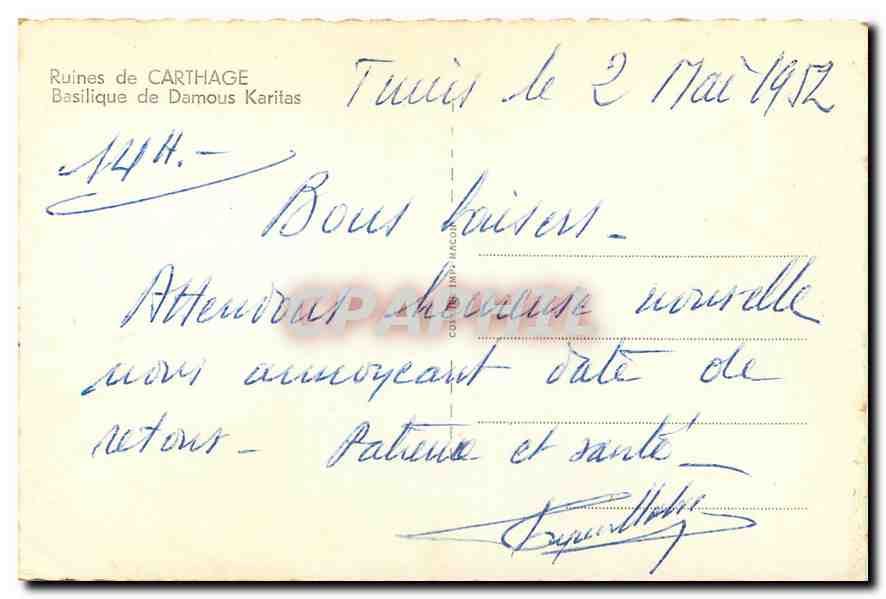 Ruines de CARTHAGE
Basilique de Damous Karitas
Tunis le 2 Mai 1952
14 H.-
Bons baisers -
Attendons heureuse nouvelle
nous annonçant date de
retour - Patience et santé -
IMP. MACON
CPAPHIL